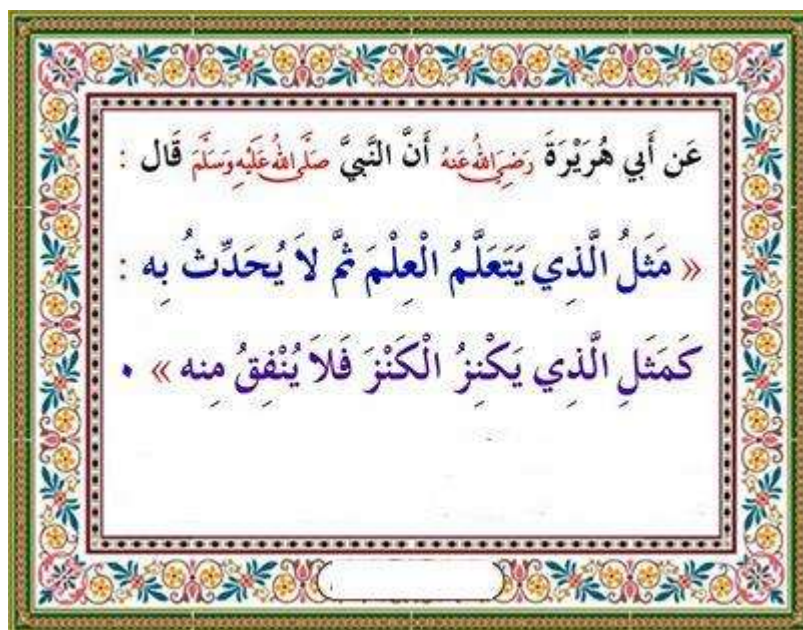 عَن أَبي هُرَيْرَةَ رَضِيَ اللهُ عَنهُ أَنَّ النَّبيَّ صَلَّى اللهُ عَلَيْهِ وَسَلَّمَ قَال :
« مَثَلُ الَّذِي يَتَعَلَّمُ الْعِلْمَ ثُمَّ لاَ يُحَدِّثُ بِه :
كَمَثَلِ الَّذِي يَكْنِزُ الْكَنْزَ فَلاَ يُنْفِقُ مِنه » .